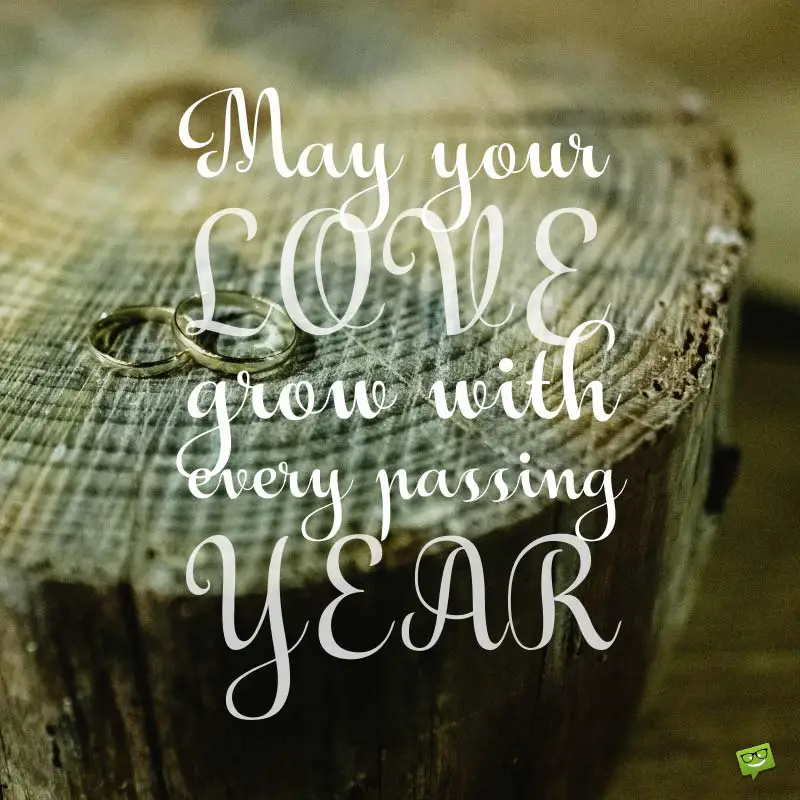 May your
LOVE
grow with
every passing
YEAR